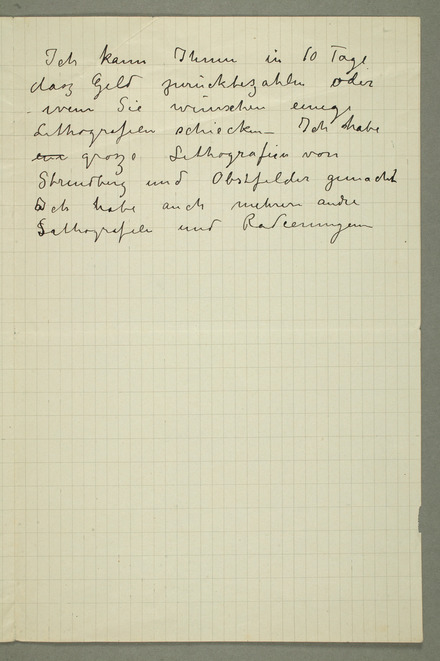 Ich kann Ihnen in 10 Tage
dasz Geld zurückbezahlen oder
wenn Sie wünschen einige
Lithografien schiecken – Ich habe
grosze Lithografien von
Strindberg und Obstfelder gemacht
Ich habe auch mehrere andre
Lithografien und Radierungen